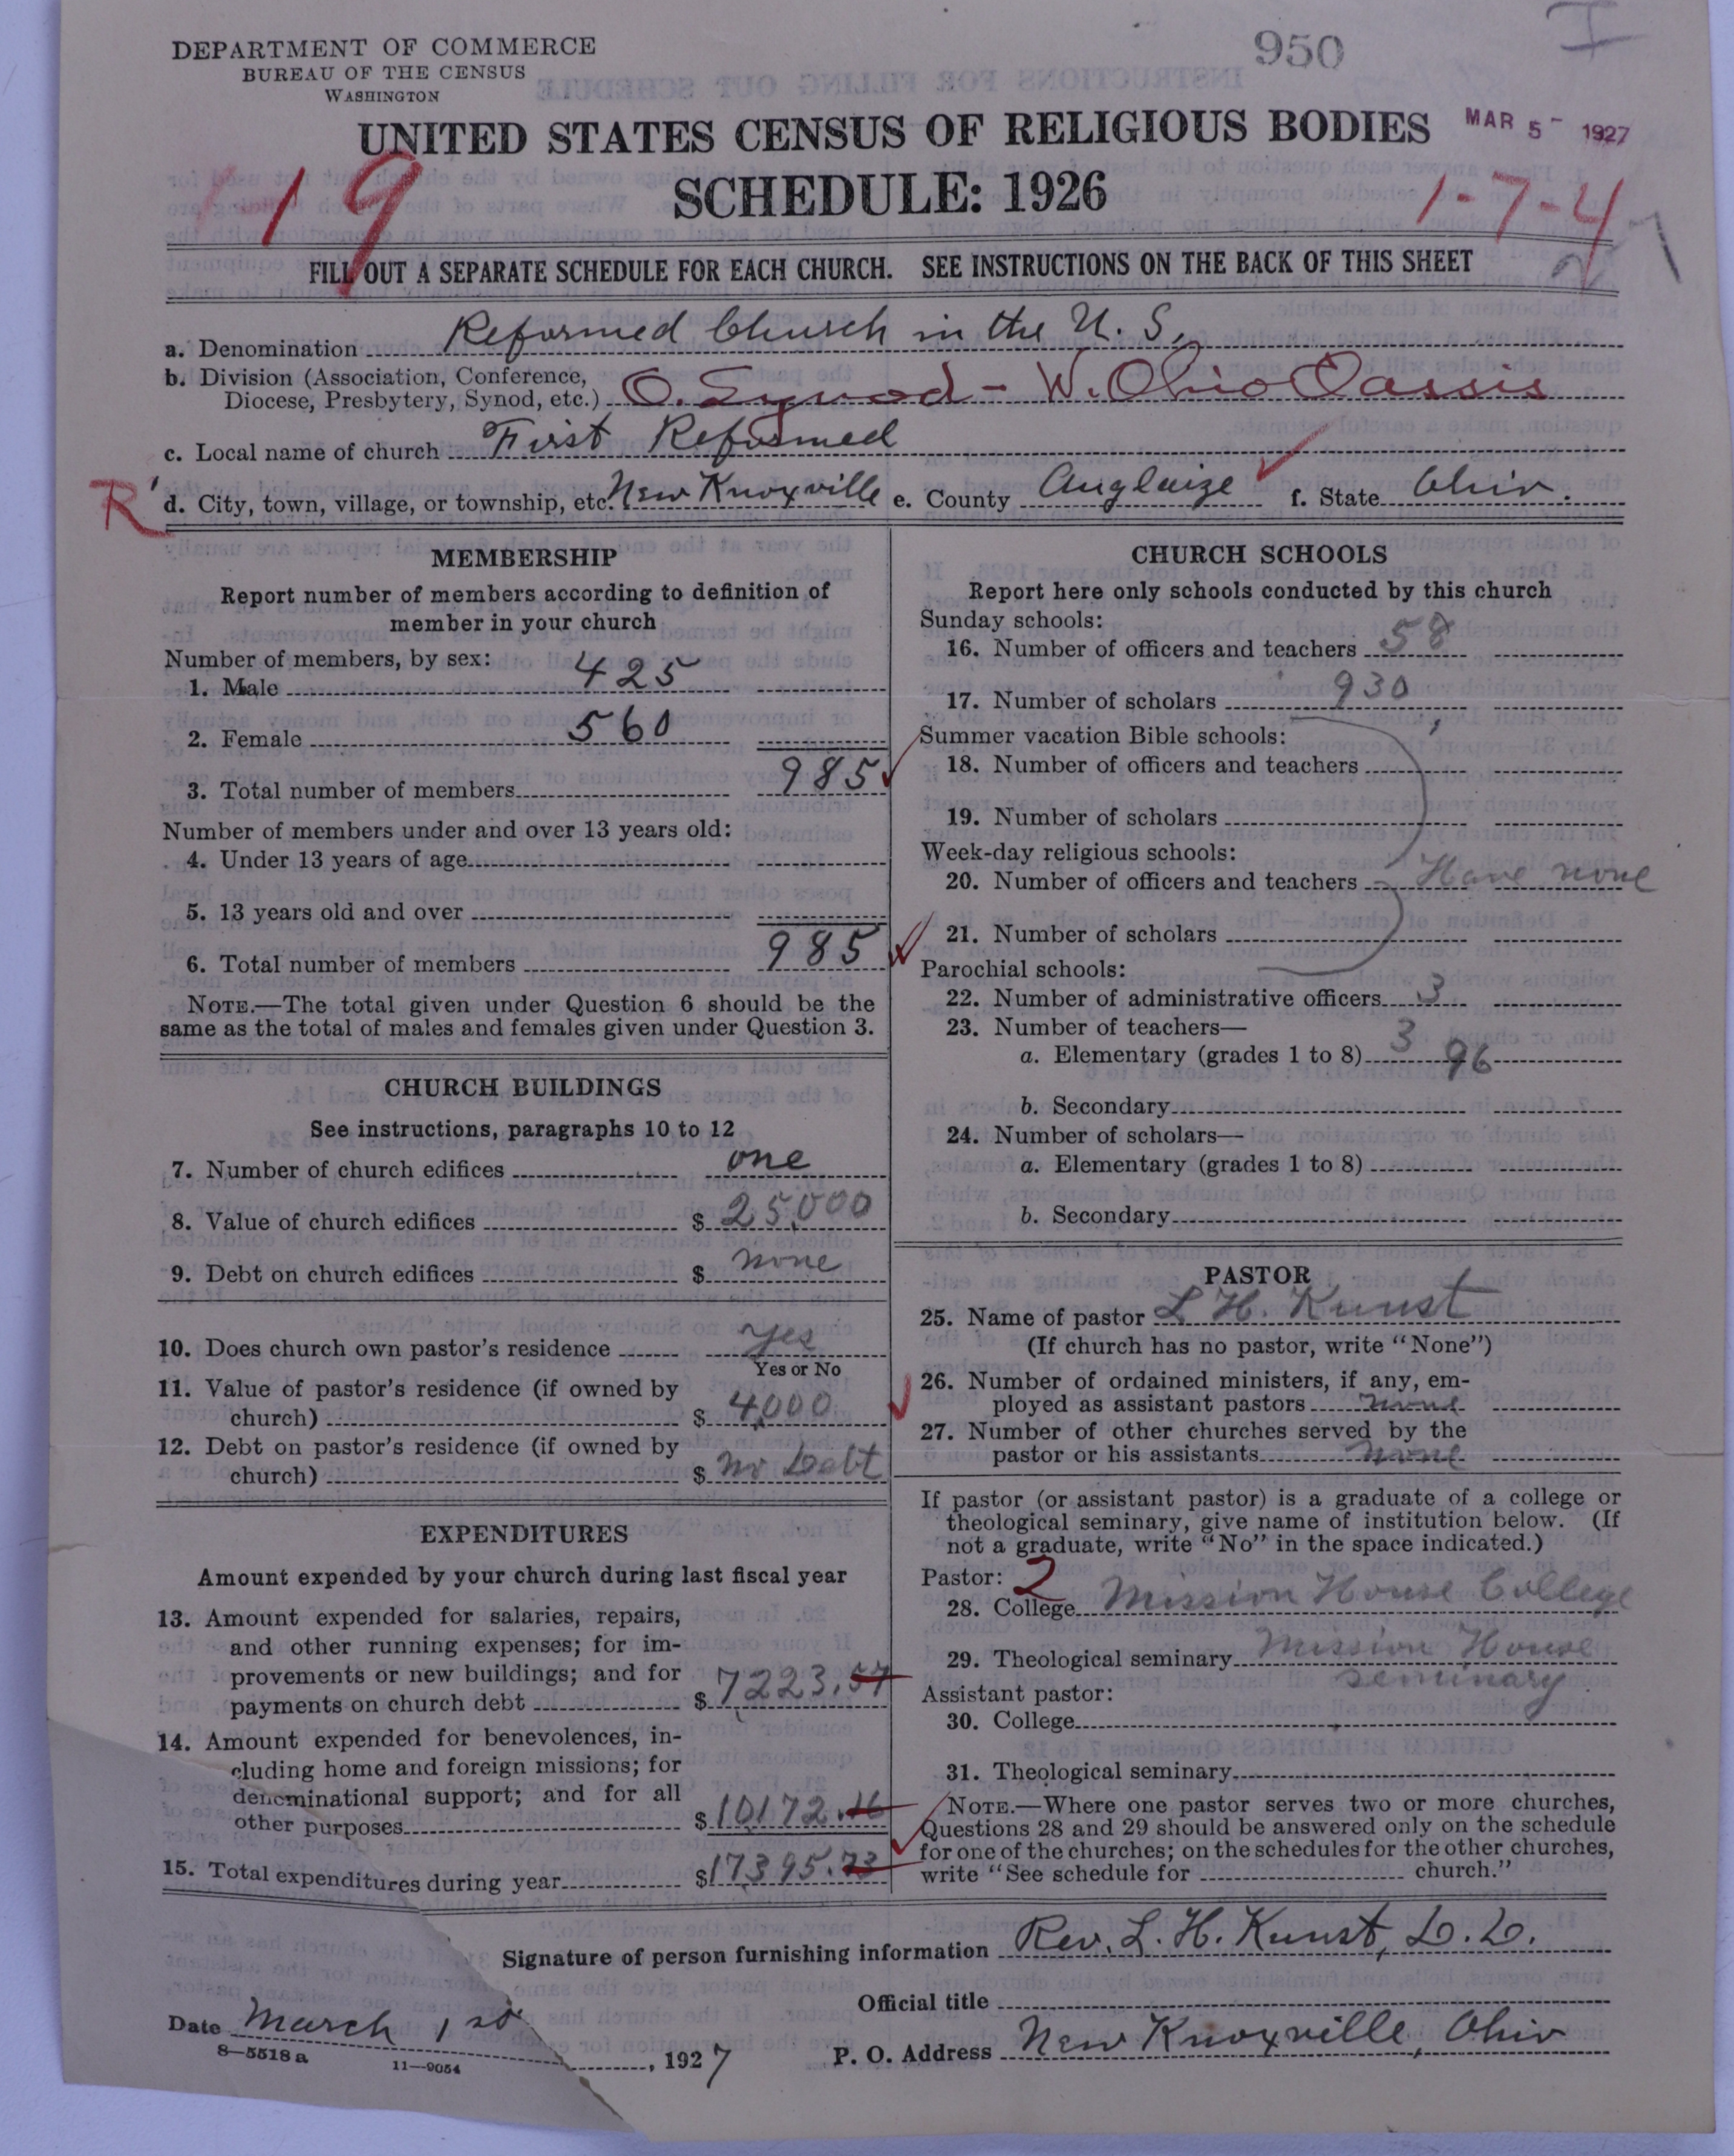 DEPARTMENT OF COMMERCE
BUREAU OF THE CENSUS
WASHINGTON
950
I
UNITED STATES CENSUS OF RELIGIOUS BODIES
MAR 5 - 1927
SCHEDULE: 1926
19
1-7-4
FILL OUT A SEPARATE SCHEDULE FOR EACH CHURCH. SEE INSTRUCTIONS ON THE BACK OF THIS SHEET
a. Denomination Reformed Church in the U. S.
b. Division (Association, Conference,
Diocese, Presbytery, Synod, etc.) O. Synod - W. Ohio Classis
c. Local name of church First Reformed
R d. City, town, village, or township, etc. New Knoxville e. County Auglaize f. State Ohio.
MEMBERSHIP
Report number of members according to definition of
member in your church
Number of members, by sex:
1. Male 425
2. Female 560
3. Total number of members 985
Number of members under and over 13 years old:
4. Under 13 years of age
5. 13 years old and over
6. Total number of members 985
NOTE.—The total given under Question 6 should be the
same as the total of males and females given under Question 3.
CHURCH BUILDINGS
See instructions, paragraphs 10 to 12
7. Number of church edifices one
8. Value of church edifices $ 25,000
9. Debt on church edifices $ none
10. Does church own pastor's residence yes
Yes or No
11. Value of pastor's residence (if owned by
church) $ 4,000
12. Debt on pastor's residence (if owned by
church) $ No Debt
EXPENDITURES
Amount expended by your church during last fiscal year
13. Amount expended for salaries, repairs,
and other running expenses; for im-
provements or new buildings; and for
payments on church debt $ 7223.57
14. Amount expended for benevolences, in-
cluding home and foreign missions; for
denominational support; and for all
other purposes $ 10,172.16
15. Total expenditures during year $ 17395.73
CHURCH SCHOOLS
Report here only schools conducted by this church
Sunday schools:
16. Number of officers and teachers 58
17. Number of scholars 930
Summer vacation Bible schools:
18. Number of officers and teachers
19. Number of scholars
Week-day religious schools:
20. Number of officers and teachers Have none
21. Number of scholars
Parochial schools:
22. Number of administrative officers 3
23. Number of teachers—
a. Elementary (grades 1 to 8) 3 96
b. Secondary
24. Number of scholars—
a. Elementary (grades 1 to 8)
b. Secondary
PASTOR
25. Name of pastor L H. Kunst
(If church has no pastor, write "None")
26. Number of ordained ministers, if any, em-
ployed as assistant pastors none
27. Number of other churches served by the
pastor or his assistants none
If pastor (or assistant pastor) is a graduate of a college or
theological seminary, give name of institution below. (If
not a graduate, write "No" in the space indicated.)
Pastor: 2
28. College Mission House College
29. Theological seminary Mission House
seminary
Assistant pastor:
30. College
31. Theological seminary
NOTE.—Where one pastor serves two or more churches,
Questions 28 and 29 should be answered only on the schedule
for one of the churches; on the schedules for the other churches,
write "See schedule for church."
Signature of person furnishing information Rev. L. H. Kunst, D. D.
Official title
Date March 1st, 1927
P. O. Address New Knoxville, Ohio
8—5518 a
11—9054